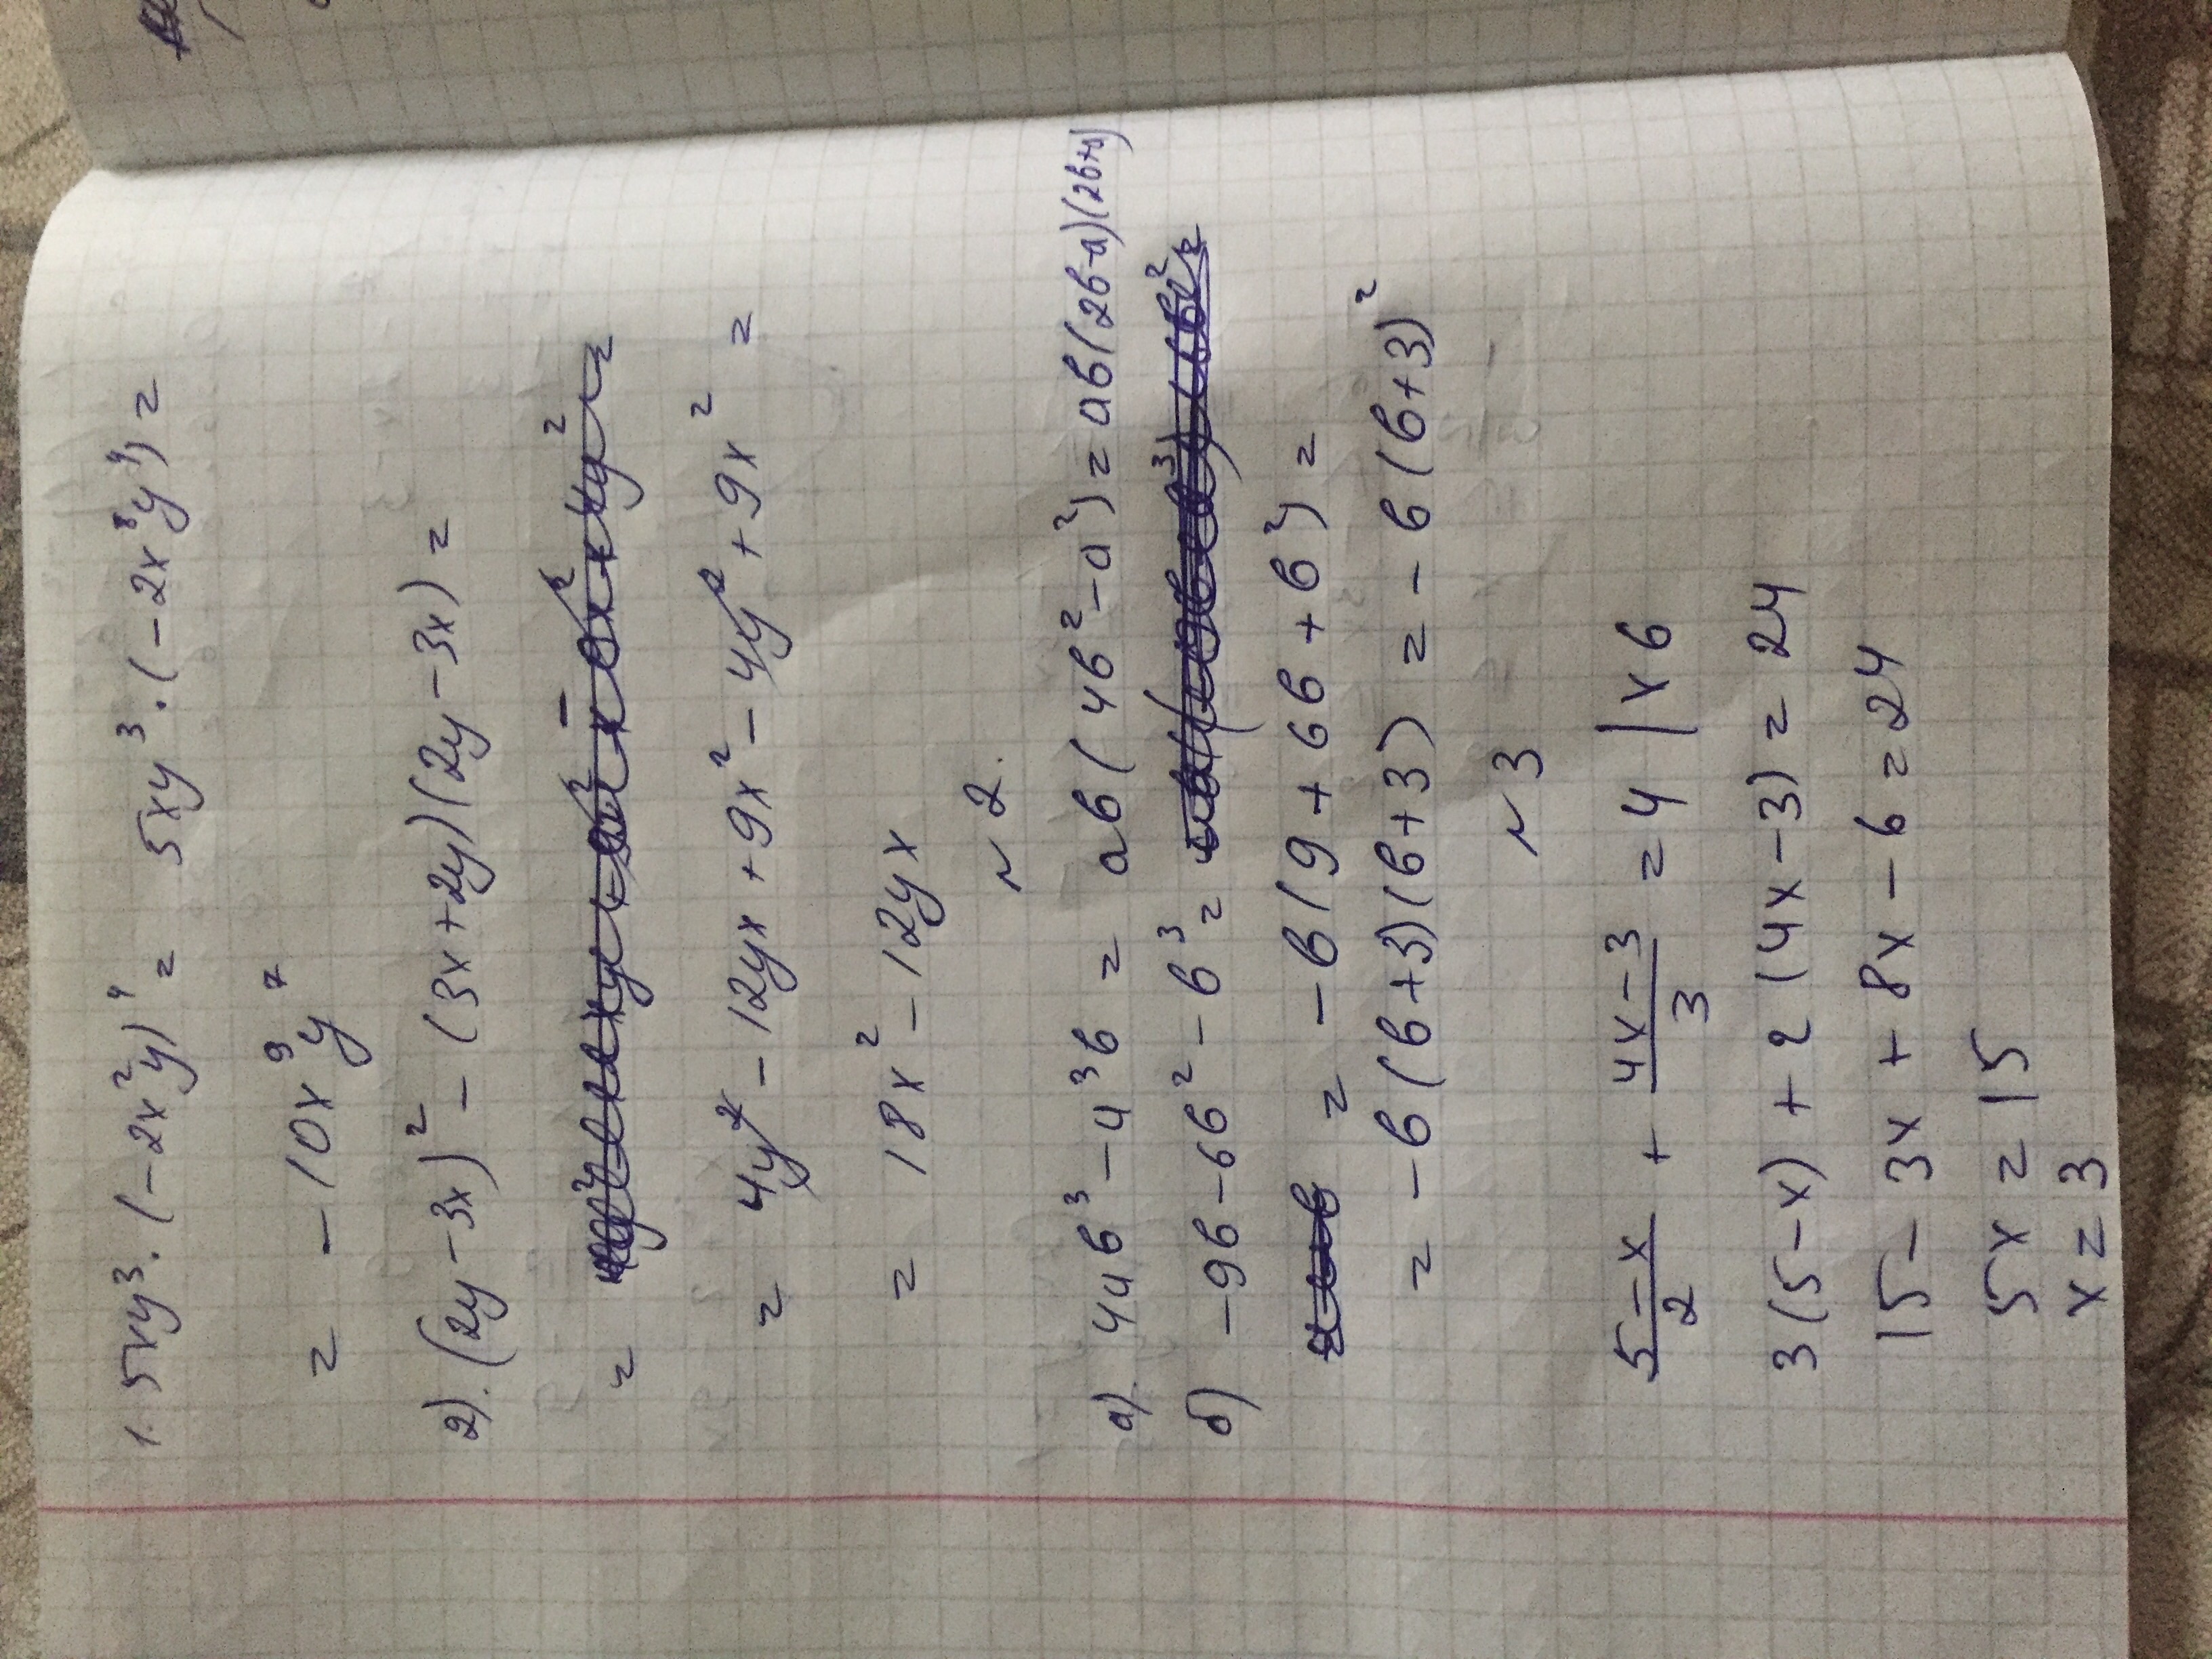 1. 5xy³·(-2x²y)⁴ = 5xy³·(-2x⁸y⁴) =
= -10x⁹y⁷
2). (2y-3x)² - (3x+2y)(2y-3x) =
=
= 4y² - 12yx + 9x² - 4y² + 9x² =
= 18x² - 12yx
~ 2.
а). 4ab³ - a³b = ab(4b²-a²) = ab(2b-a)(2b+a)
б) -9b-6b²-b³ =
= -b(9+6b+b²) =
= -b(b+3)(b+3) = -b(b+3)²
~ 3
(5-x)/2 + (4x-3)/3 = 4 | x6
3(5-x) + 2(4x-3) = 24
15-3x + 8x-6 = 24
5x = 15
x = 3